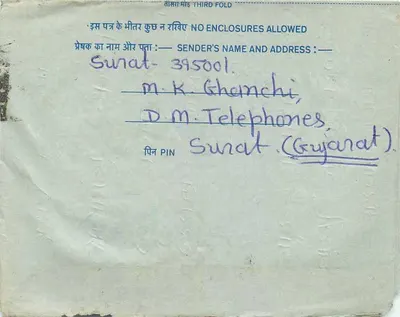 तीसरा मोड़ THIRD FOLD
इस पत्र के भीतर कुछ न रखिए NO ENCLOSURES ALLOWED
प्रेषक का नाम और पता :— SENDER'S NAME AND ADDRESS :—
Surat - 395001.
M. K. Ghanchi,
D. M. Telephones,
पिन PIN Surat. (Gujarat).